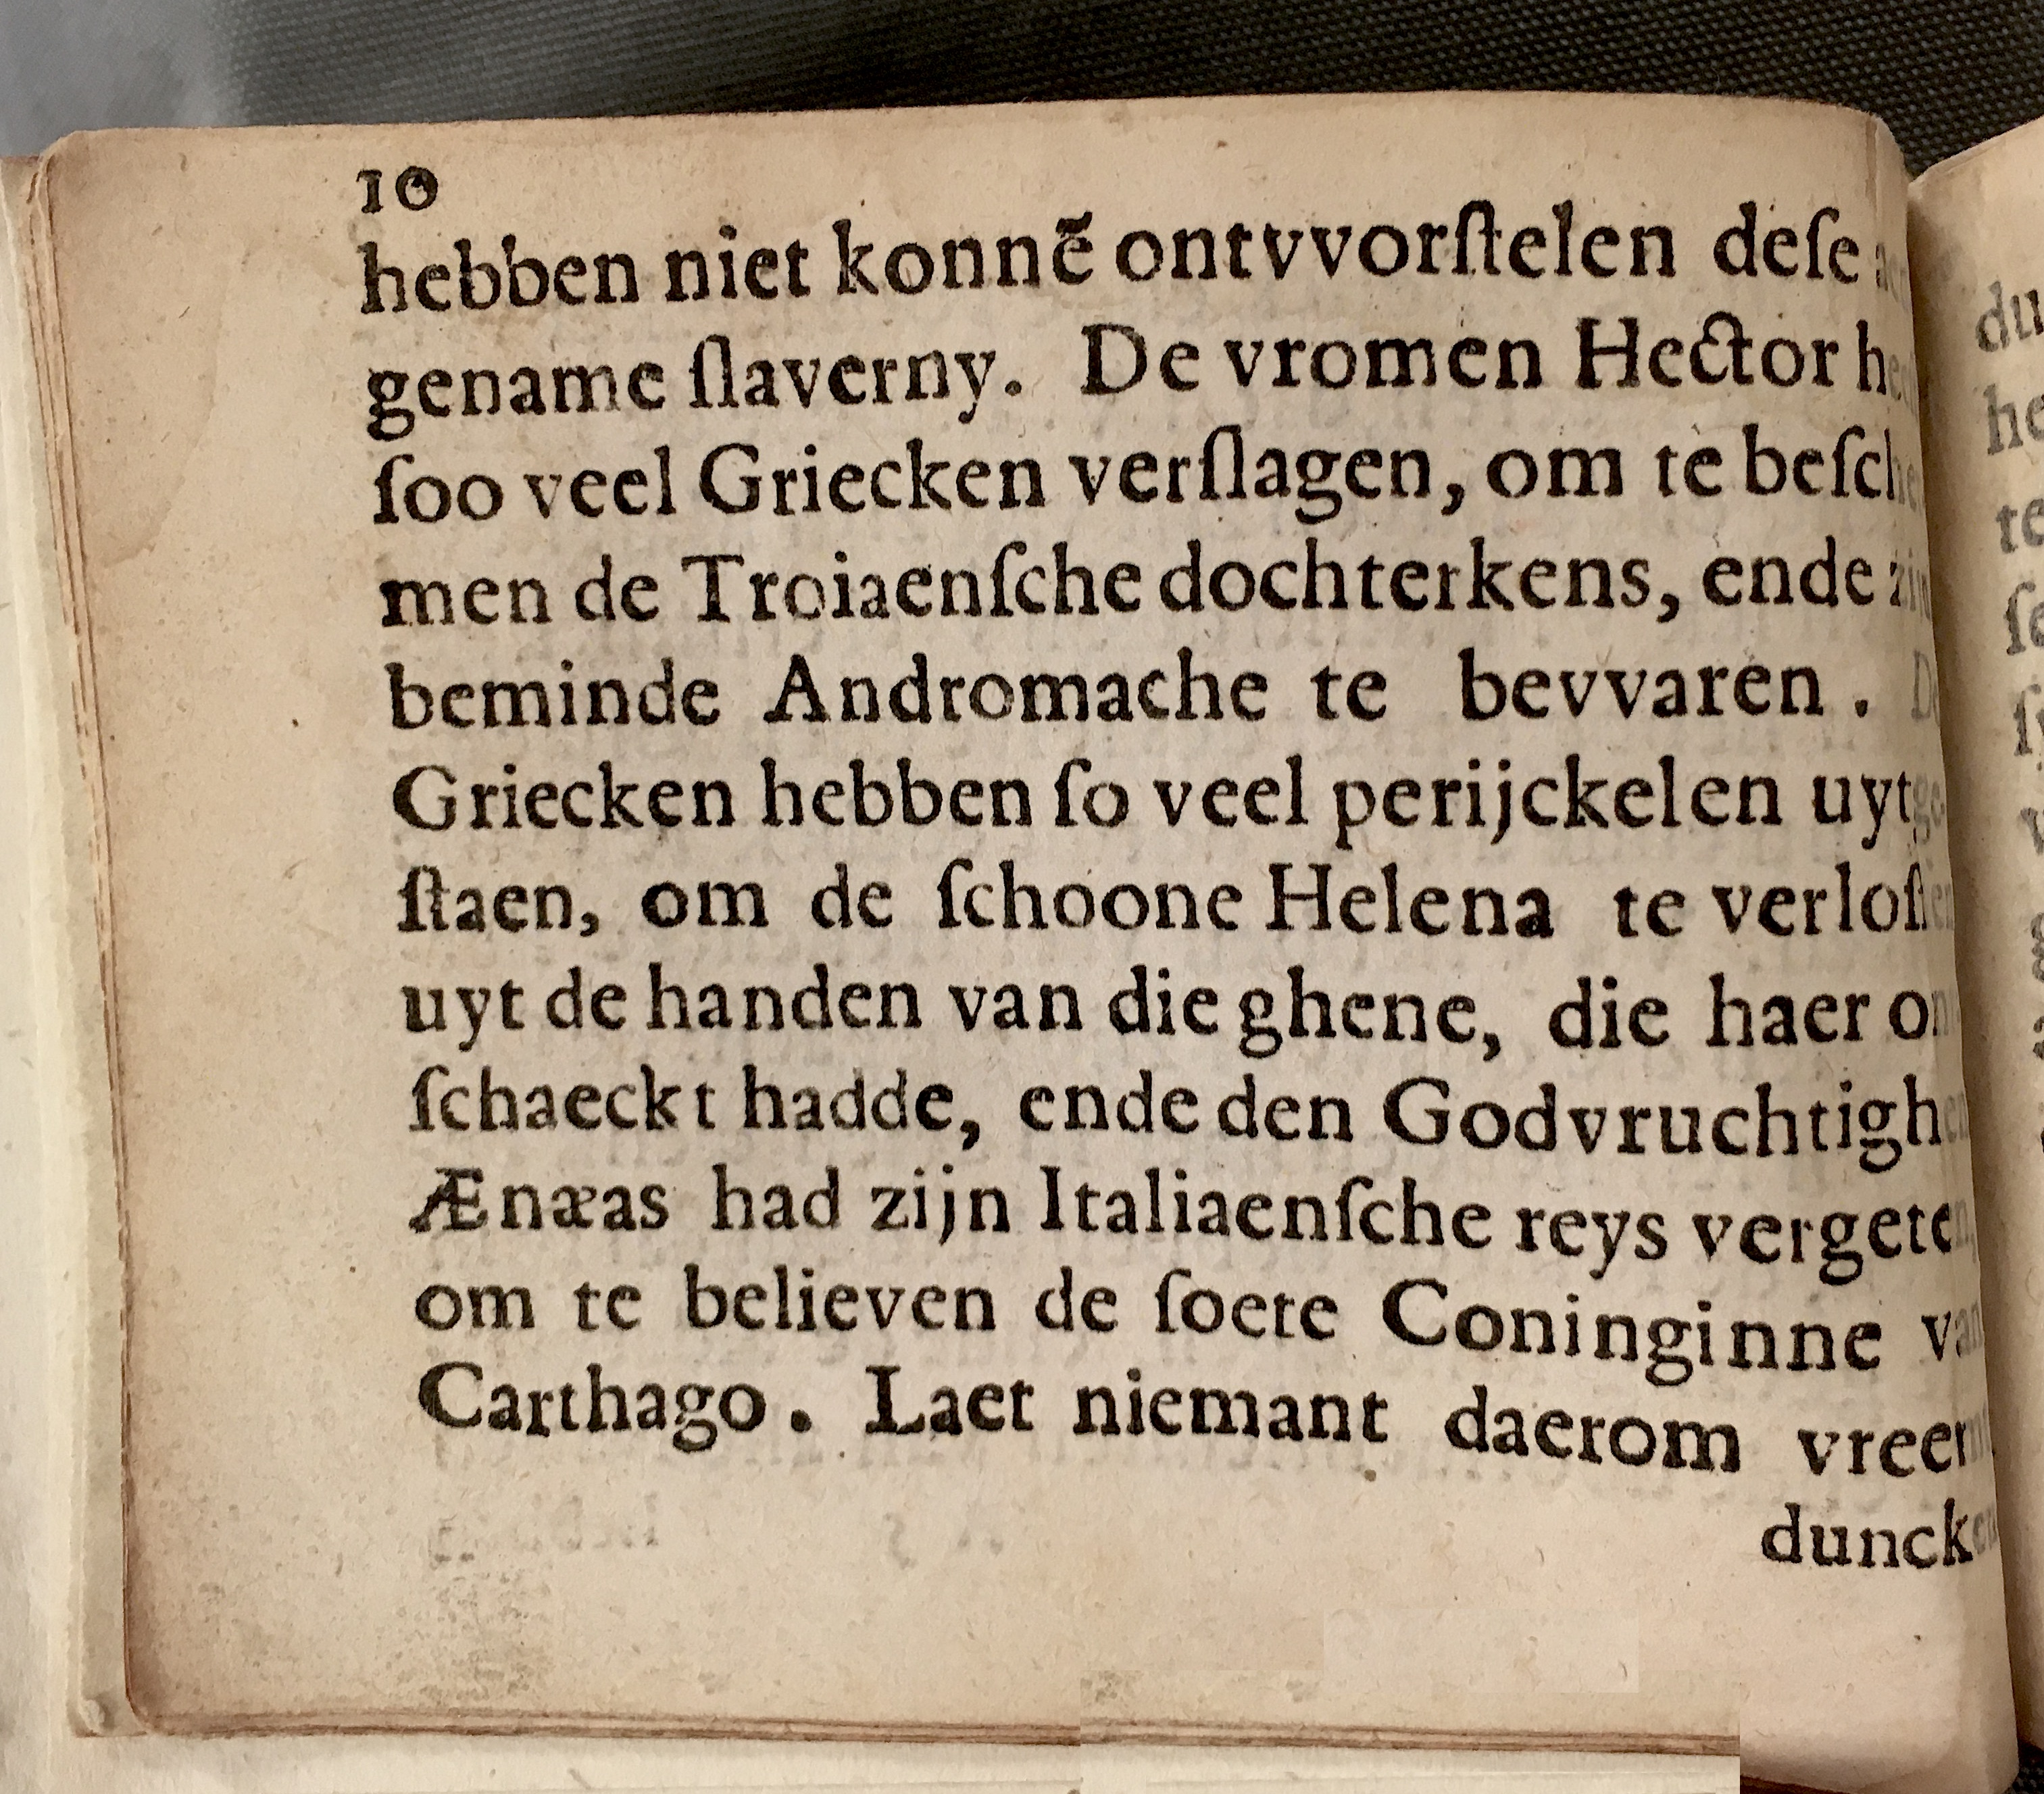 10
hebben niet konnẽ ontvvorſtelen deſe
gename ſlaverny. De vromen Hector
ſoo veel Griecken verſlagen, om te beſche
men de Troiaenſche dochterkens, ende
beminde Andromache te bevvaren.
Griecken hebben ſo veel perijckelen uytge
ſtaen, om de ſchoone Helena te verloſſen
uyt de handen van die ghene, die haer
ſchaeckt hadde, ende den Godvruchtighen
Ænæas had zijn Italiaenſche reys vergeten
om te believen de ſoete Coninginne van
Carthago. Laet niemant daerom
duncken
du
he
te